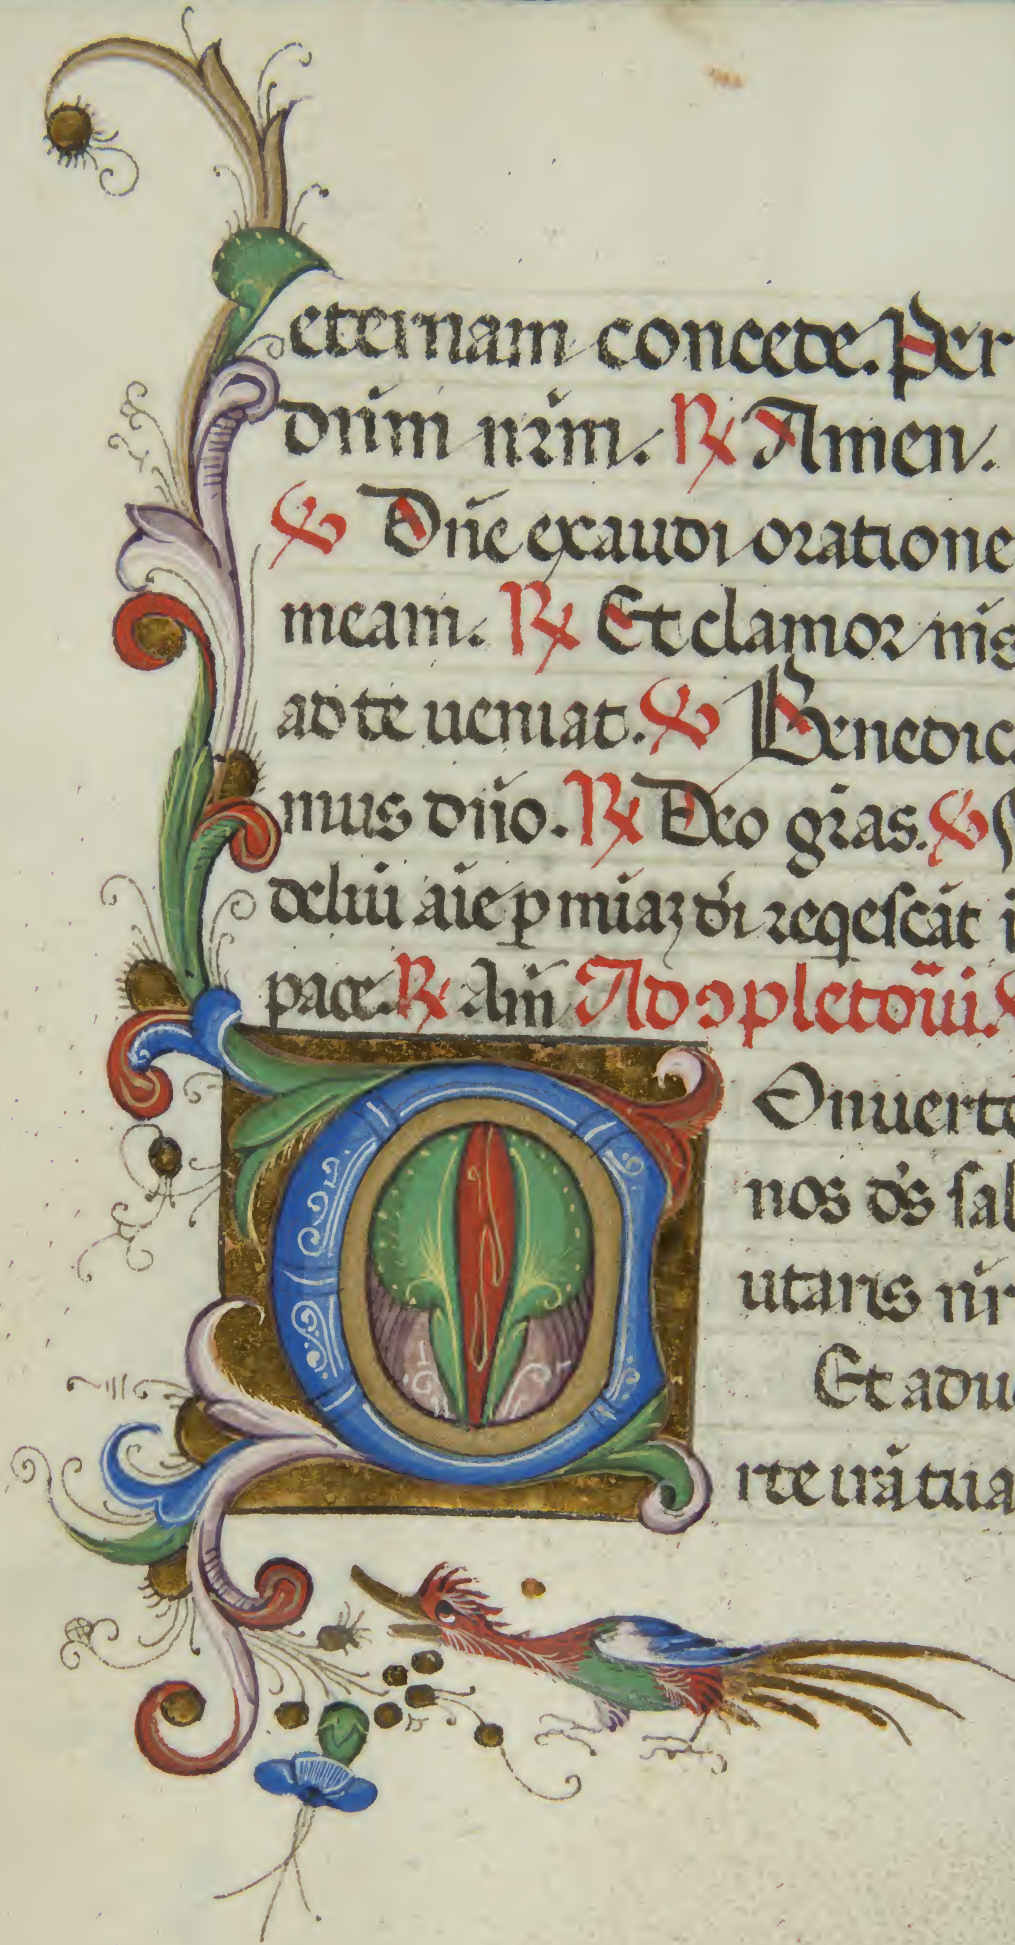 eternam concede. Per
dnm̄ nr̄m. ℟ Amen.
℣ Dn̄e exaudi oratione
meam. ℟ Et clamor m̄s
ad te ueniat. ℣ Benedica
mus dn̄o. ℟ Deo gr̄as. ℣
deliū aīe ꝑ mīaꝫ dī reqescāt i
pace. ℟ Am̄ Ad ↄpletoɼ̄iū.
COnuerte
nos ds̄ sal
utaris nr̄
Et adue
rte irā tua